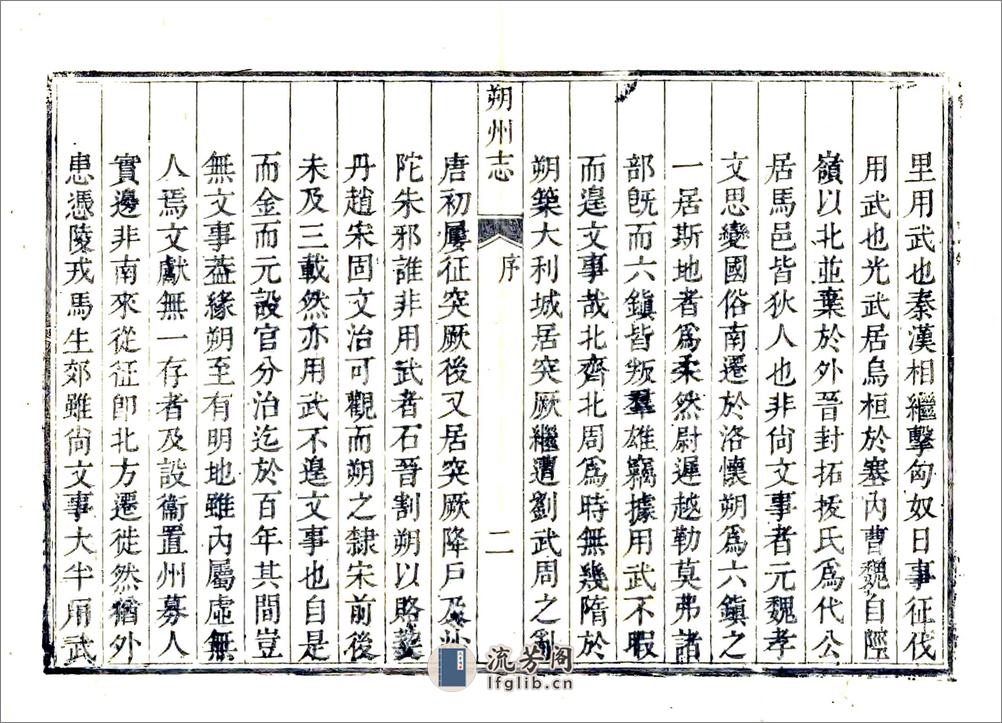 里用武也秦漢相繼擊匈奴日事征伐
用武也光武居烏桓於塞內曹魏自陘
嶺以北並棄於外晉封拓拔氏爲代公
居馬邑皆狄人也非尙文事者元魏孝
文思變國俗南遷於洛懷朔爲六鎮之
一居斯地者爲柔然尉遲越勒莫弗諸
部旣而六鎮皆叛羣雄竊據用武不暇
而遑文事哉北齊北周爲時無幾隋於
朔築大利城居突厥繼遭劉武周之亂
朔州志 序 二
唐初屢征突厥後又居突厥降戶及沙
陀朱邪誰非用武者石晉割朔以賂契
丹趙宋固文治可觀而朔之隸宋前後
未及三載然亦用武不遑文事也自是
而金而元設官分治迄於百年其間豈
無文事葢緣朔至有明地雖內屬虛無
人焉文獻無一存者及設衞置州募人
實邊非南來從征卽北方遷徙然猶外
患憑陵戎馬生郊雖尙文事大半用武
流芳阁
lfglib.cn